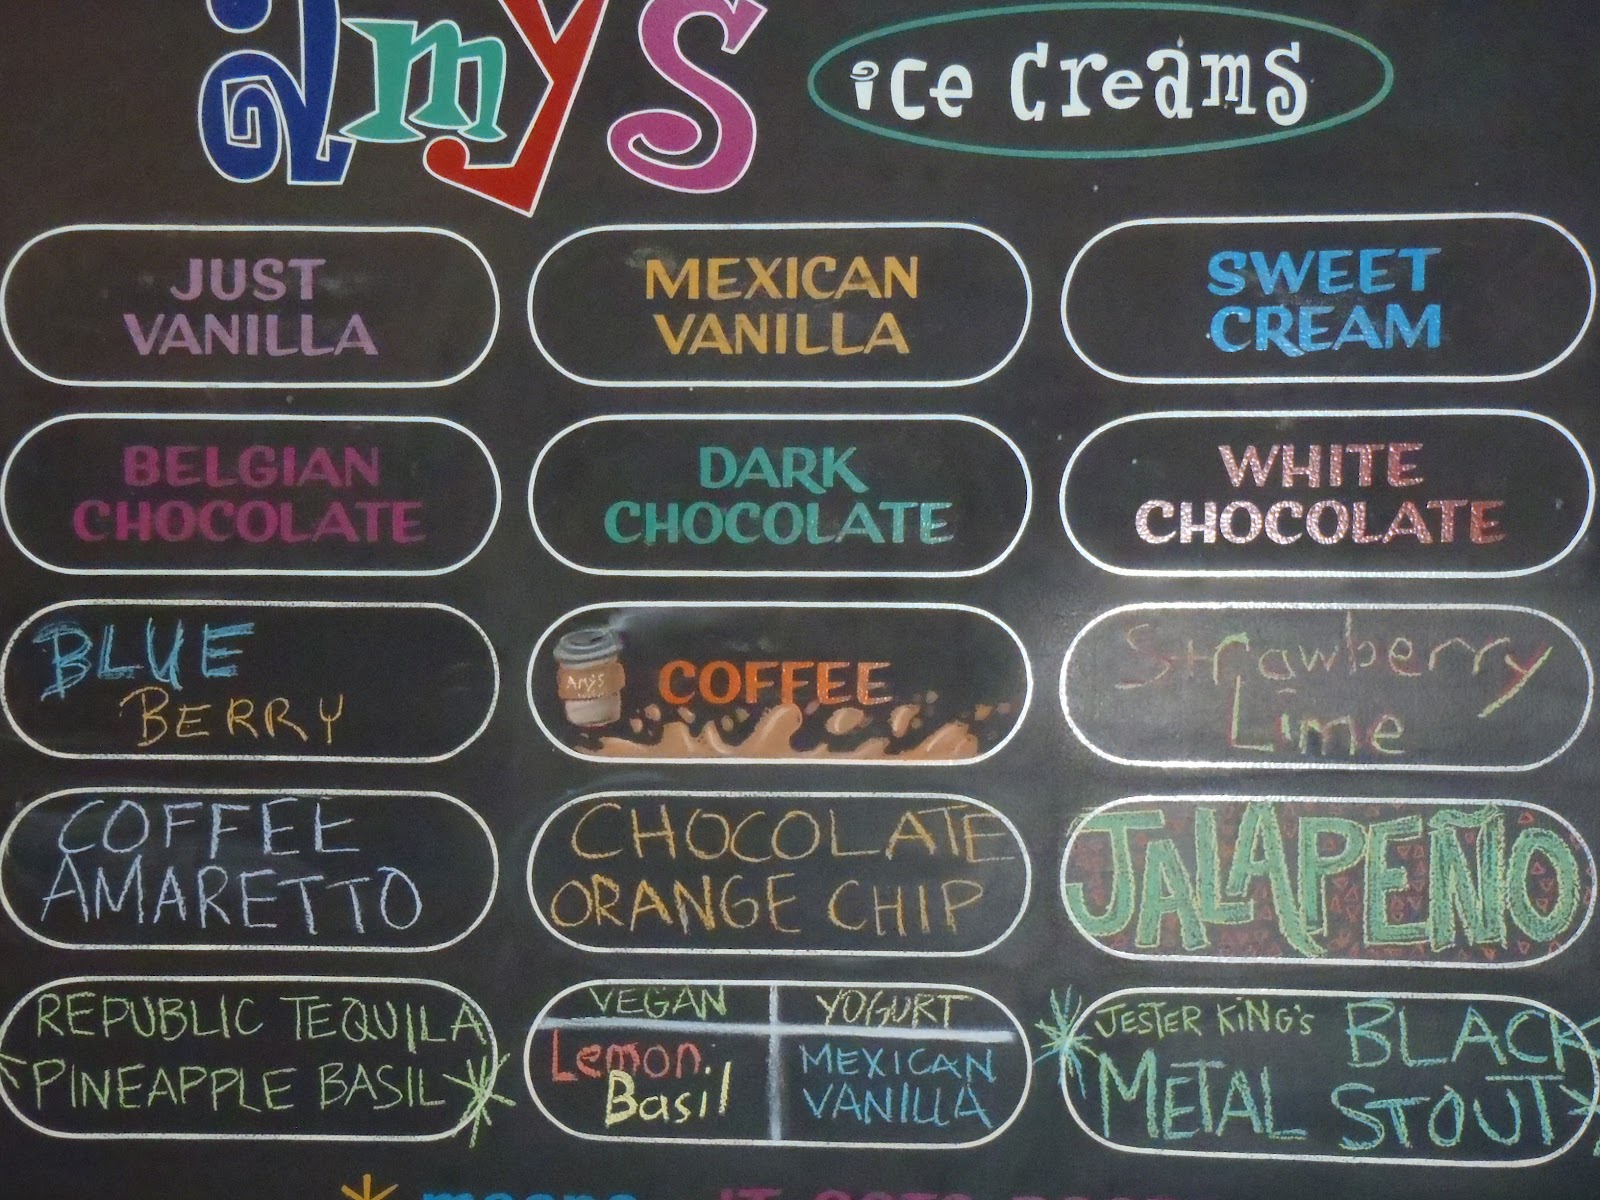 amys ice creams
JUST
VANILLA
MEXICAN
VANILLA
SWEET
CREAM
BELGIAN
CHOCOLATE
DARK
CHOCOLATE
WHITE
CHOCOLATE
BLUE
BERRY
AMYS
COFFEE
Strawberry
Lime
COFFEE
AMARETTO
CHOCOLATE
ORANGE CHIP
JALAPEÑO
REPUBLIC TEQUILA
PINEAPPLE BASIL
VEGAN
Lemon
Basil
YOGURT
MEXICAN
VANILLA
JESTER KING'S BLACK
METAL STOUT
* means